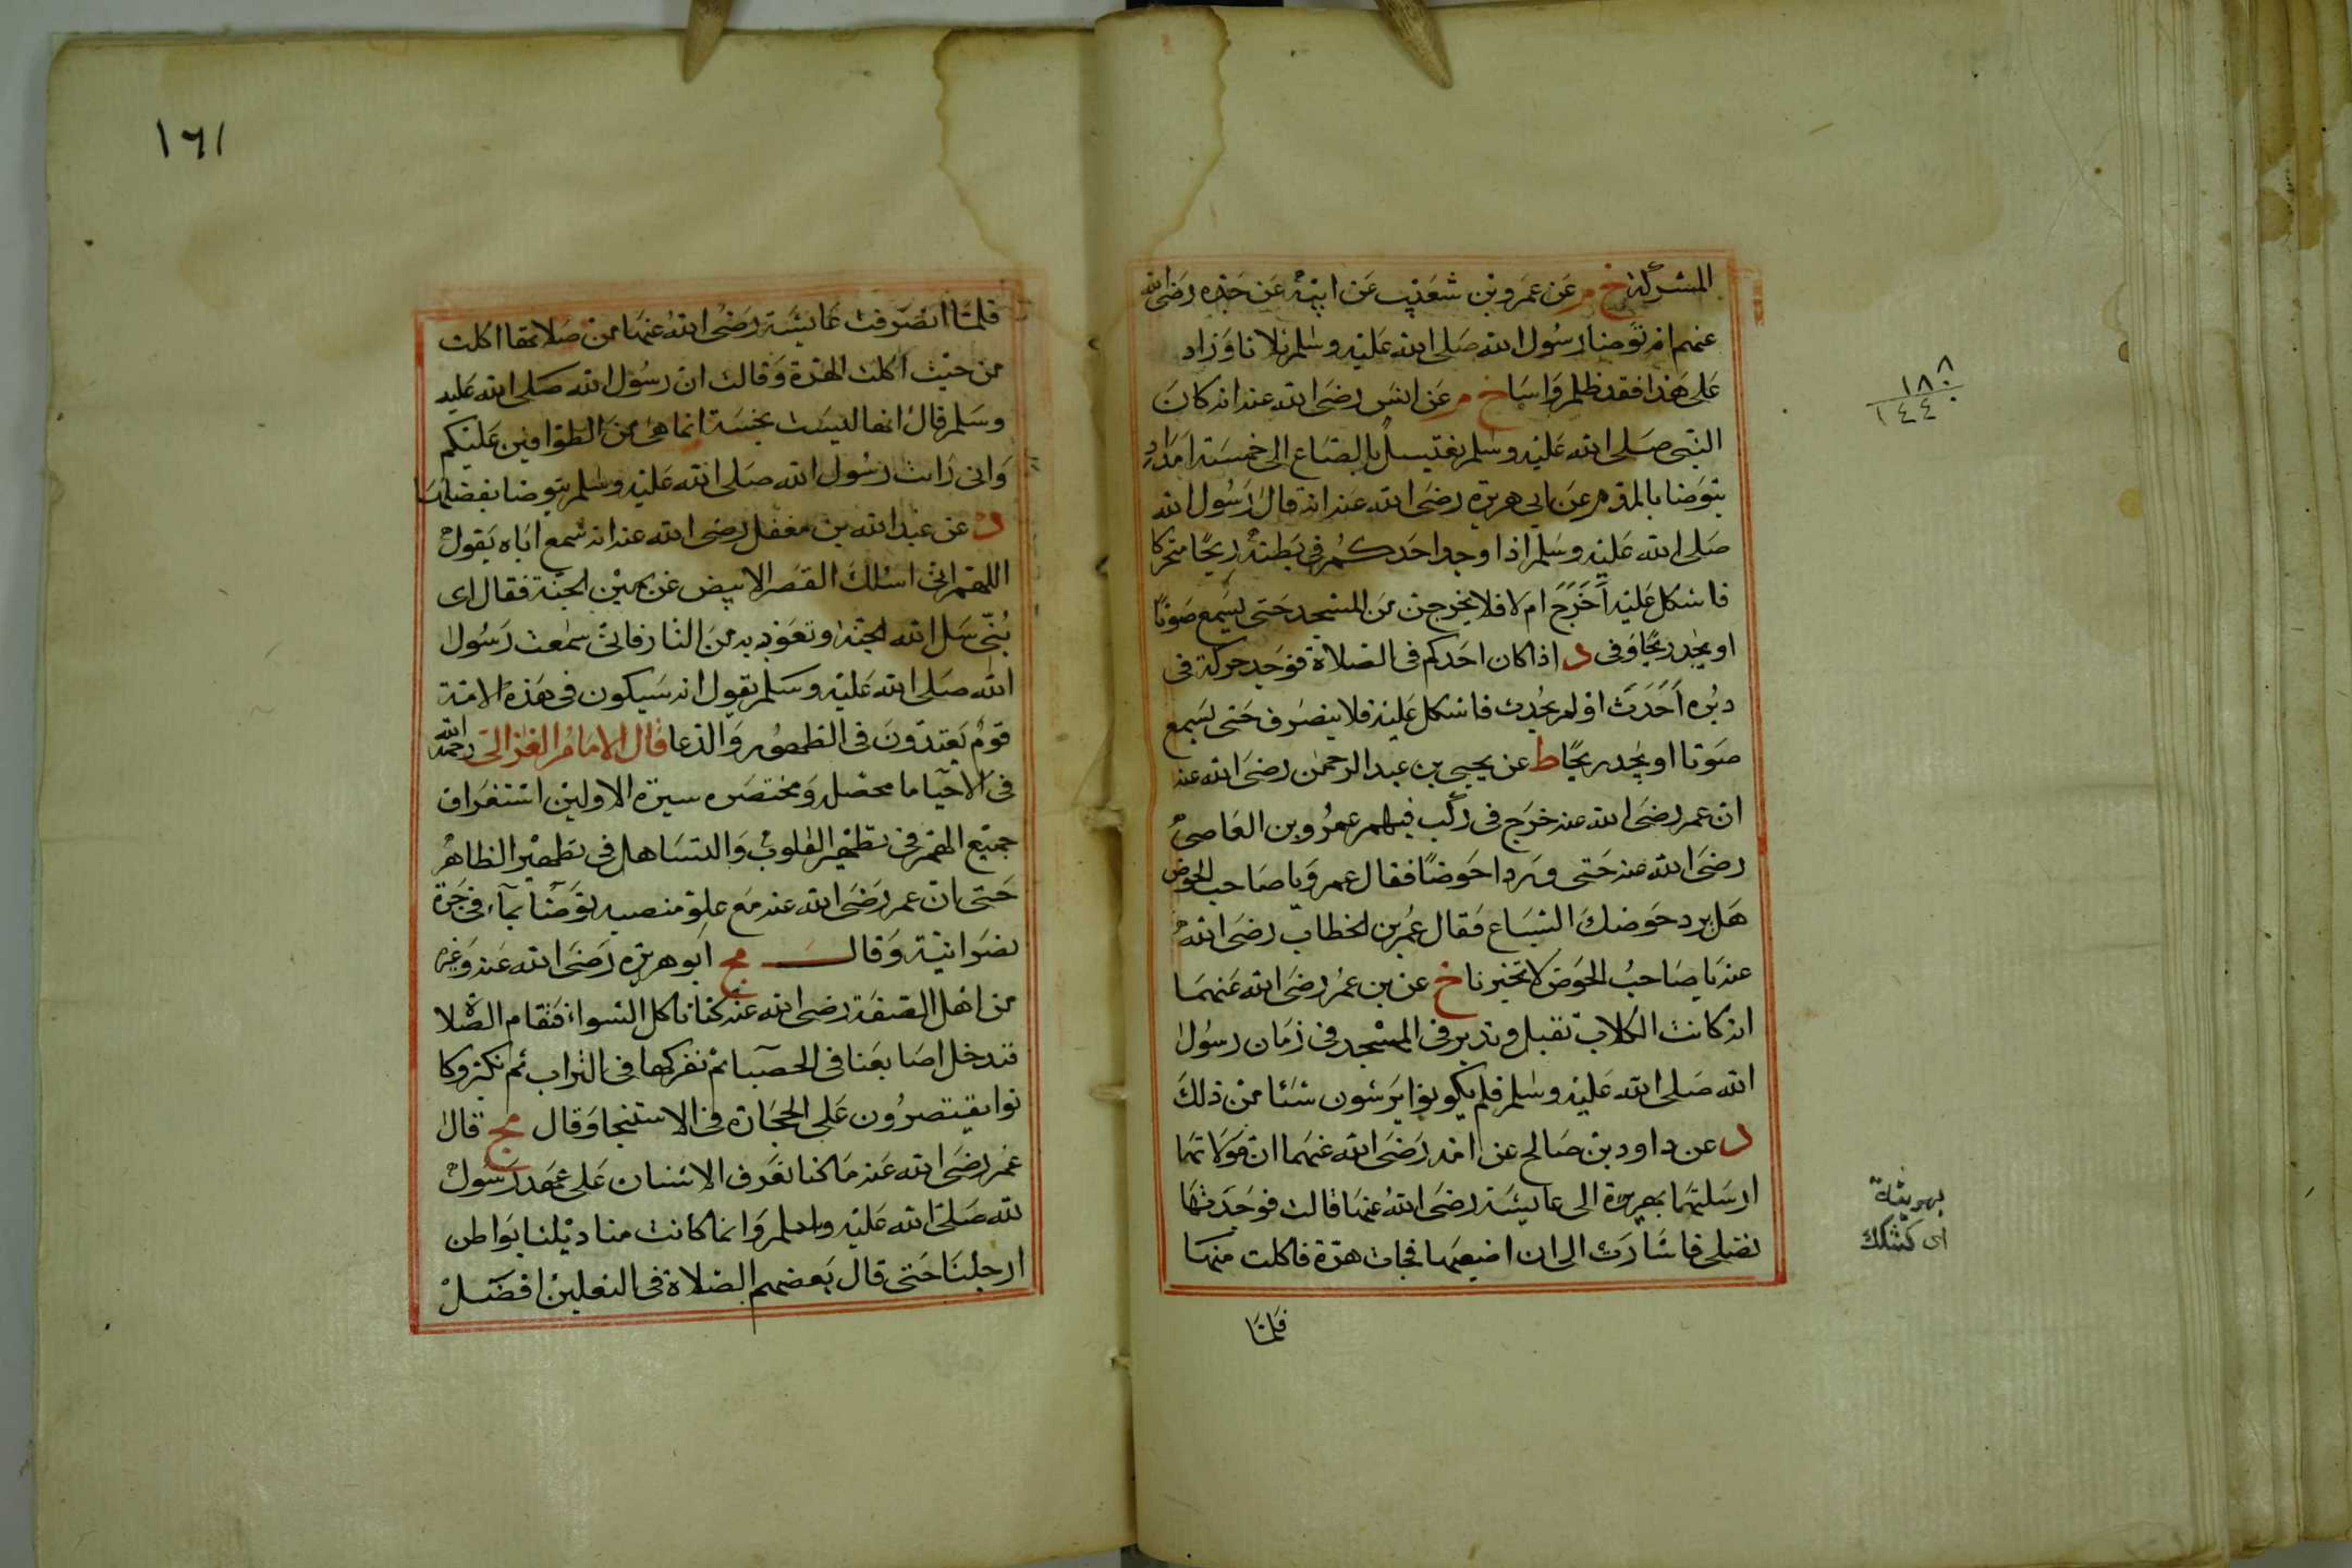 المشركة خ م عن عمرو بن شعيب عن ابيه عن جده رضى الله
عنهم انه توضا رسول الله صلى الله عليه وسلم ثلاثا وزاد
على هذا فقد ظلم واسا خ م عن انس رضى الله عنه انه كان
النبى صلى الله عليه وسلم يغتسل بالصاع الى خمسة امداد
يتوضا بالمد م عن ابى هريره رضى الله عنه انه قال رسول الله
صلى الله عليه وسلم اذا وجد احدكم فى بطنه ريحا متحركا
فاشكل عليه أخرج ام لا فلا يخرجن من المسجد حتى يسمع صوتا
او يجد ريحا وفى د اذا كان احدكم فى الصلاة فوجد حركة فى
دبره أحدث او لم يحدث فاشكل عليه فلا ينصرف حتى يسمع
صوتا او يجد ريحا ط عن يحيى بن عبد الرحمن رضى الله عنه
ان عمر رضى الله عنه خرج فى ركب فيهم عمرو بن العاصى
رضى الله عنه حتى وردا حوضا فقال عمرو يا صاحب الحوض
هل يرد حوضك السباع فقال عمر بن الخطاب رضى الله
عنه يا صاحب الحوض لا تخبرنا خ عن بن عمر رضى الله عنهما
انه كانت الكلاب تقبل وتدبر فى المسجد فى زمان رسول
الله صلى الله عليه وسلم فلم يكونوا يرشون شئا من ذلك
د عن داود بن صالح عن امه رضى الله عنهما ان مولاتها
ارسلتها بهريرة الى عايشة رضى الله عنها قالت فوجدتها
تصلى فاشارت الى ان اضيعها فجات هرة فاكلت منها
فلما
١٨٨
١٤٤٠
اى كشكك
١٦١
فلما انصرفت عايشة رضى الله عنها من صلاتها اكلت
من حيث اكلت الهرة وقالت ان رسول الله صلى الله عليه
وسلم قال انها ليست بنجسة انما هى من الطوافين عليكم
وانى رات رسول الله صلى الله عليه وسلم يتوضا بفضلها
د عن عبد الله بن مغفل رضى الله عنه انه سمع اباه يقول
اللهم انى اسئلك القصر الابيض عن يمين الجنة فقال اى
بنى سل الله الجنة وتعوذ به من النار فانى سمعت رسول
الله صلى الله عليه وسلم يقول انه سيكون فى هذه الامة
قوم يعتدون فى الطهور والدعا قال الامام الغزالى رحمه الله
فى الاحيا ما محصله ومختصره سيرة الاولين استغراق
جميع الهم فى تطهير القلوب والتساهل فى تطهير الظاهر
حتى ان عمر رضى الله عنه مع علو منصبه توضا بماء فى جرة
نصرانية وقال مج ابو هريره رضى الله عنه وغيره
من اهل الصفة رضى الله عنه كنا ناكل الشواء فتقام الصلاة
فندخل اصابعنا فى الحصبا ثم نفركها فى التراب ثم نكبر وكا
نوا يقتصرون على الحجارة فى الاستنجا وقال مج قال
عمر رضى الله عنه ما كنا نعرف الاشنان على عهد رسول
لله صلى الله عليه وسلم وانما كانت منا ديلنا بواطن
ارجلنا حتى قال بعضهم الصلاة فى النعلين افضل